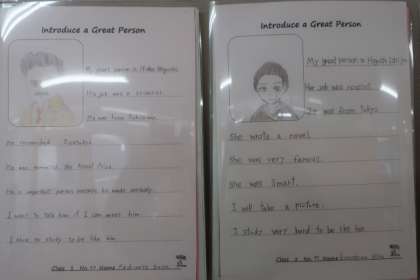 Introduce a Great Person
My great person is Hideo Noguchi.
His job was a scientist.
He was from Fukushima.
He researched
He was nominated the Nobel Prize.
He is important person because he made
I want to talk him if I can meet him.
I have to study to be like him.
Class 3 No. 17 Name
Introduce a Great Person
My great person is Higuchi Ichiyo.
Her job was novelist.
She was from Tokyo.
She wrote a novel.
She was very famous.
She was smart.
I will take a picture.
I study very hard to be like her.
Class 3 No. Name